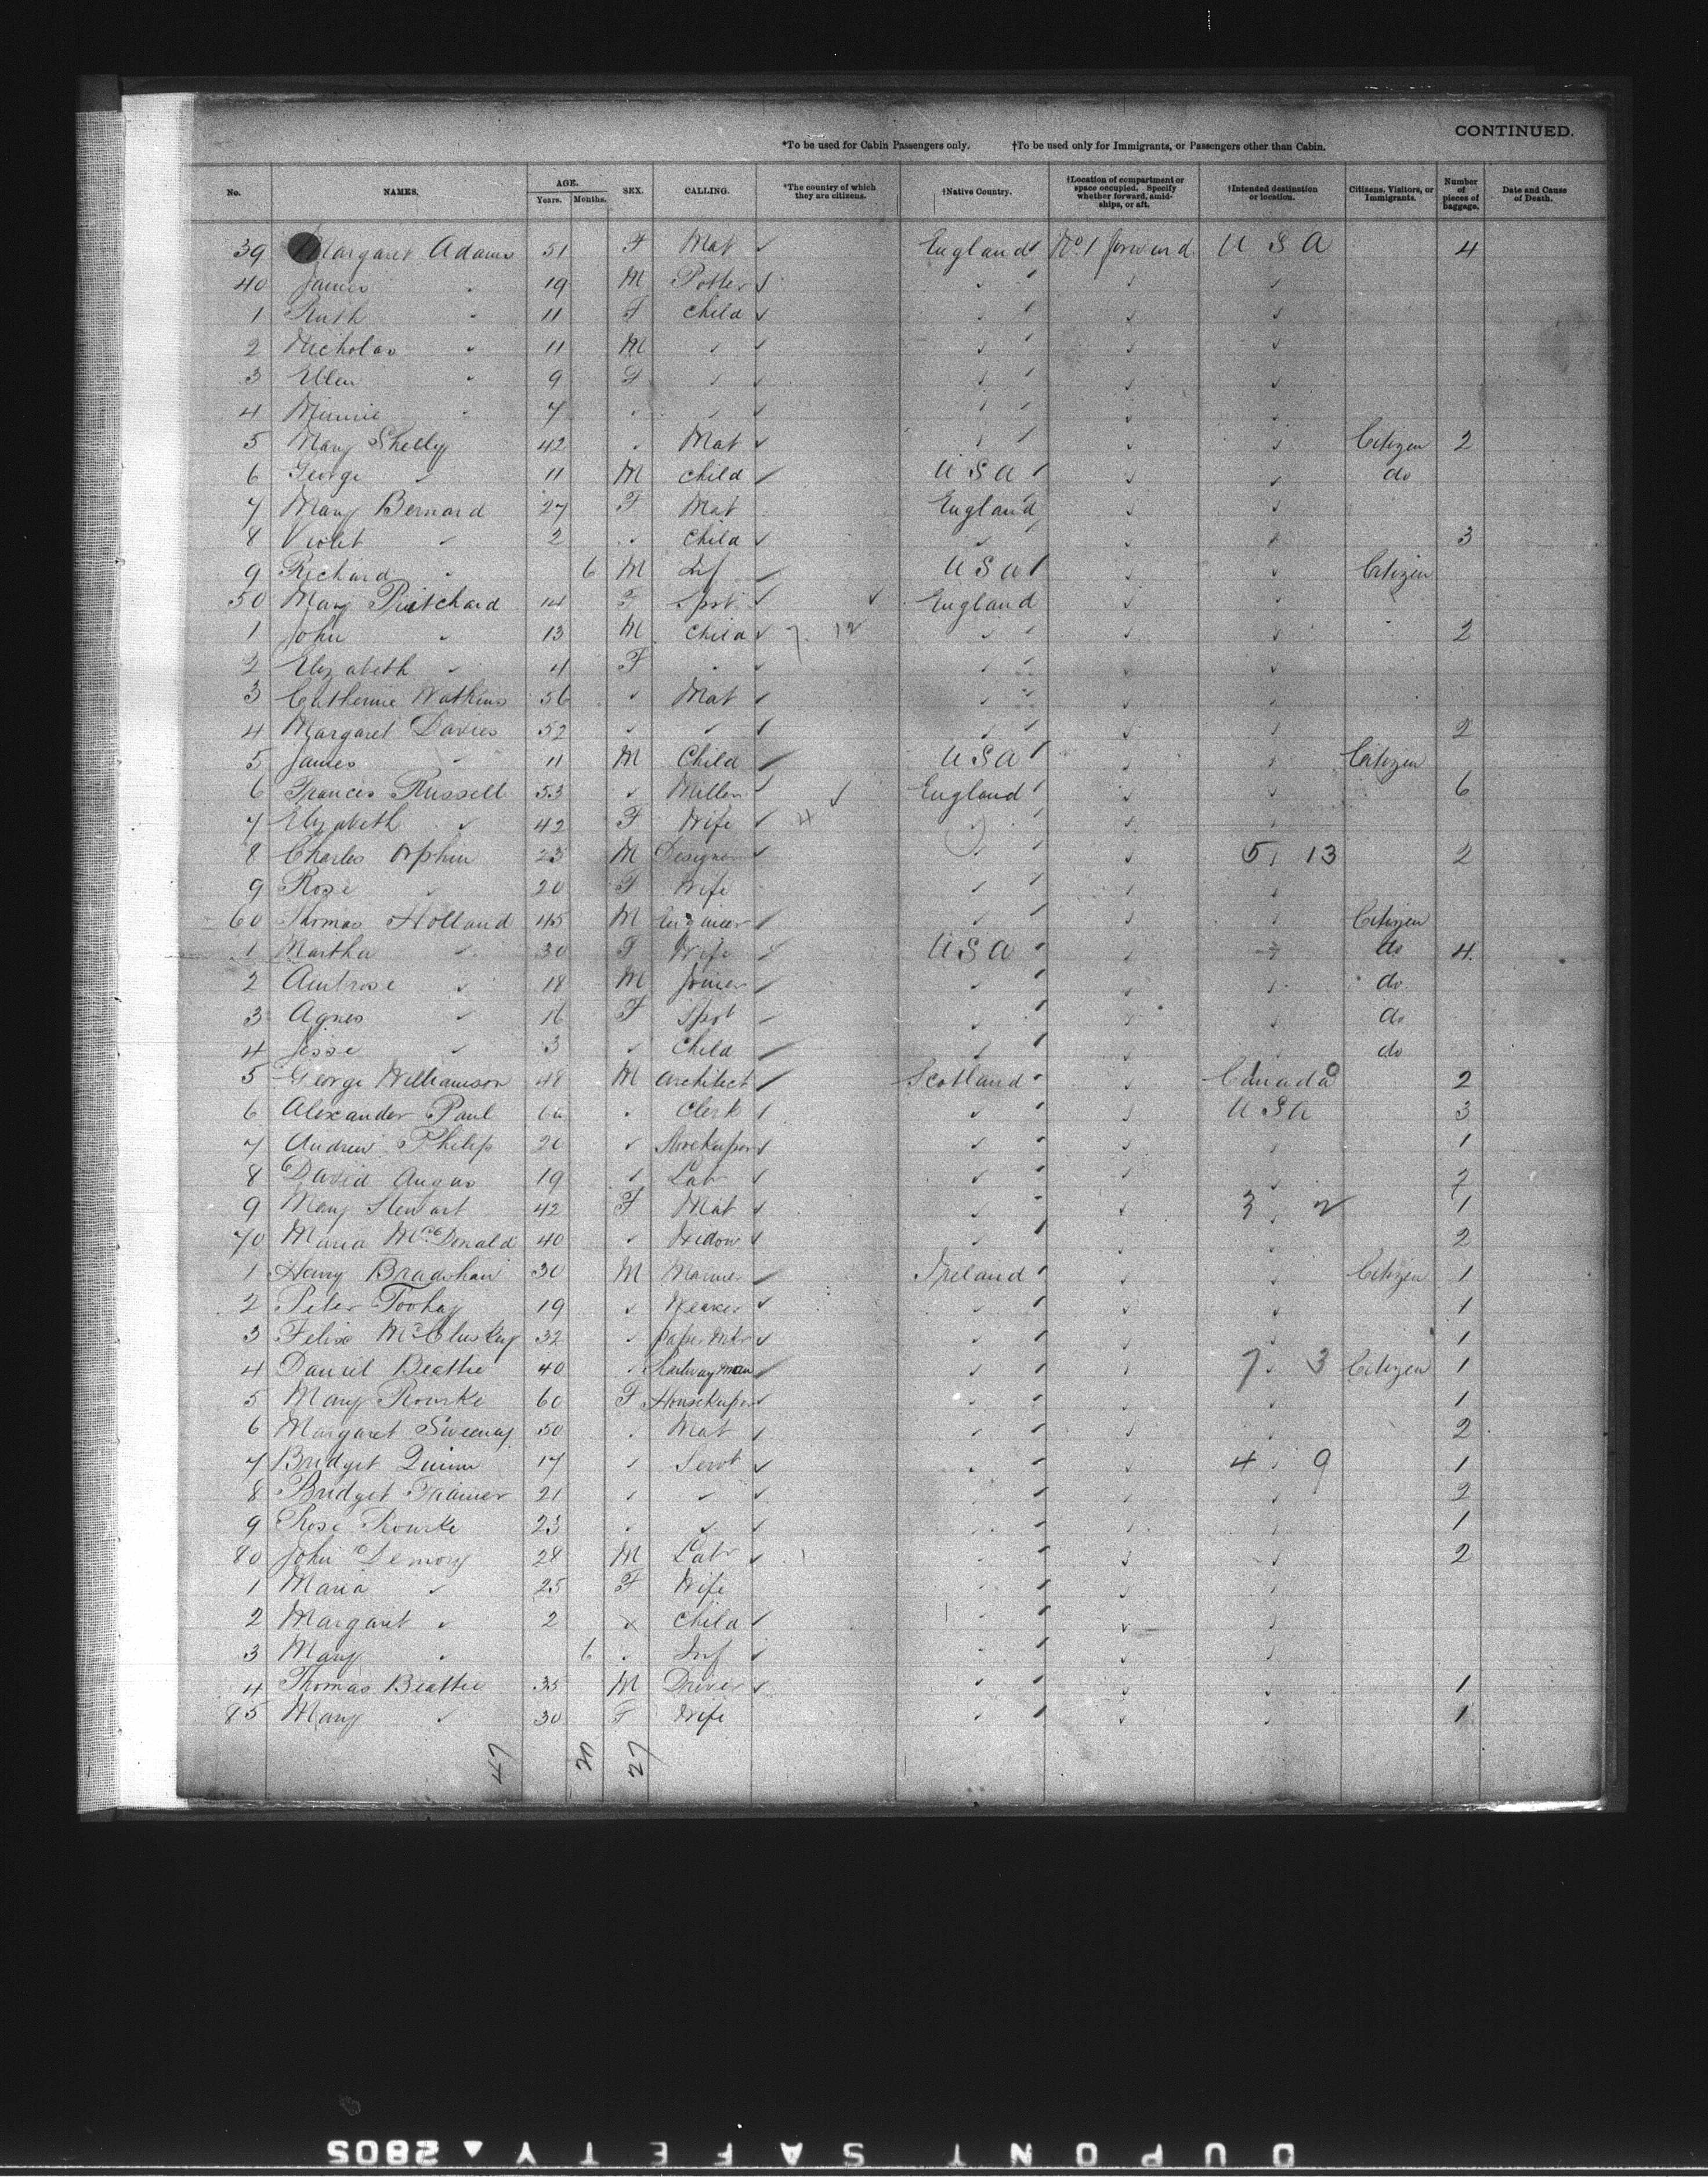 CONTINUED.
*To be used for Cabin Passengers only. †To be used only for Immigrants, or Passengers other than Cabin.
No. NAMES. AGE. Years. Months. SEX. CALLING. *The country of which they are citizens. †Native Country. †Location of compartment or space occupied. Specify whether forward, amidships, or aft. †Intended destination or location. Citizens, Visitors, or Immigrants. Number of pieces of baggage. Date and Cause of Death.
39 Margaret Adams 51 F Mat ✓ England No 1 forward U S A 4
40 James 〃 19 M Potter ✓
1 Ruth 〃 11 F Child ✓
2 Nicholas 〃 11 M
3 Ellen 〃 9 F
4 Minnie 〃 7
5 Mary Shelly 42 Mat ✓ Citizen 2
6 George 〃 11 M Child U S A do
7 Mary Bernard 27 F Mat England
8 Violet 〃 2 Child ✓ 3
9 Richard 〃 6 M Inf U S A Citizen
50 Mary Pritchard 14 F Spst ✓ England
1 John 〃 13 M Child ✓ 7. 12 2
2 Elizabeth 〃 4 F
3 Catherine Watkins 56 Mat ✓
4 Margaret Davies 52 2
5 James 〃 11 M Child U S A Citizen
6 Frances Russell 53 Miller England 6
7 Elizabeth 〃 42 F Wife ✓ 4
8 Charles 23 M Designer 5 13 2
9 Rose 〃 20 F Wife
60 Thomas Holland 45 M Engineer Citizen
1 Martha 〃 30 F Wife U S A do 4
2 Ambrose 〃 18 M Joiner do
3 Agnes 〃 16 F Spst do
4 Jesse 〃 3 Child do
5 George Williamson 48 M Architect Scotland Canada 2
6 Alexander Paul Clerk U S A 3
7 Andrew Philip 20 Storekeeper 1
8 David Angus 19 Labr 2
9 Mary Stewart 42 F Mat 3 2 1
70 Maria McDonald 40 Widow 2
1 Henry Bradshaw 30 M Mariner Ireland Citizen 1
2 Peter Toohay 19 Weaver 1
3 Felix McCluskey 32 Paper Mkr 1
4 Daniel Beattie 40 Railway man 7 3 Citizen 1
5 Mary Rourke 60 F Housekeeper 1
6 Margaret Sweeney 50 Mat 2
7 Bridget Quinn 17 Servt 4 9 1
8 Bridget 21 2
9 Rose Rourke 23 1
80 John Demory 28 M Labr 2
1 Maria 〃 25 F Wife
2 Margaret 〃 2 Child
3 Mary 〃 6 Inf
4 Thomas Beattie 35 M Driver 1
85 Mary 〃 30 F Wife 1
47 20 27
DUPONT SAFETY ▲ 2805